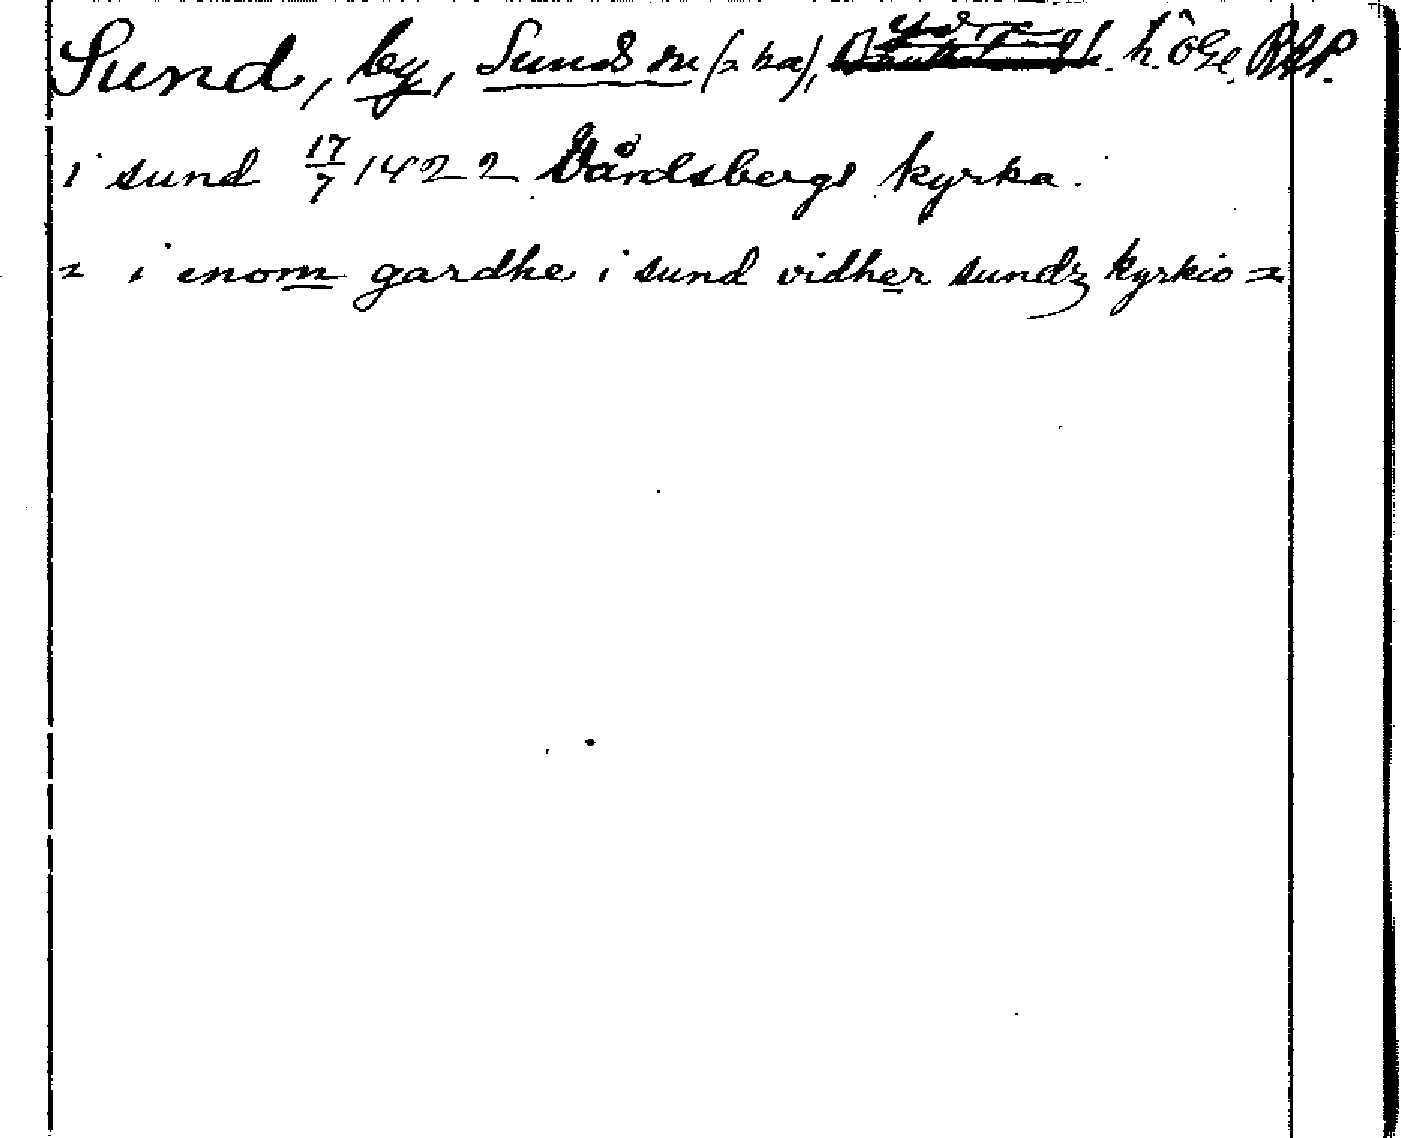 Sund, by, Sunds sn (= ha), Ydre h. ÖGe. RAP.
i sund 17/7 1422 Vårdsbergs kyrka.
= i enom gardhe i sund vidher sundz kyrkio =